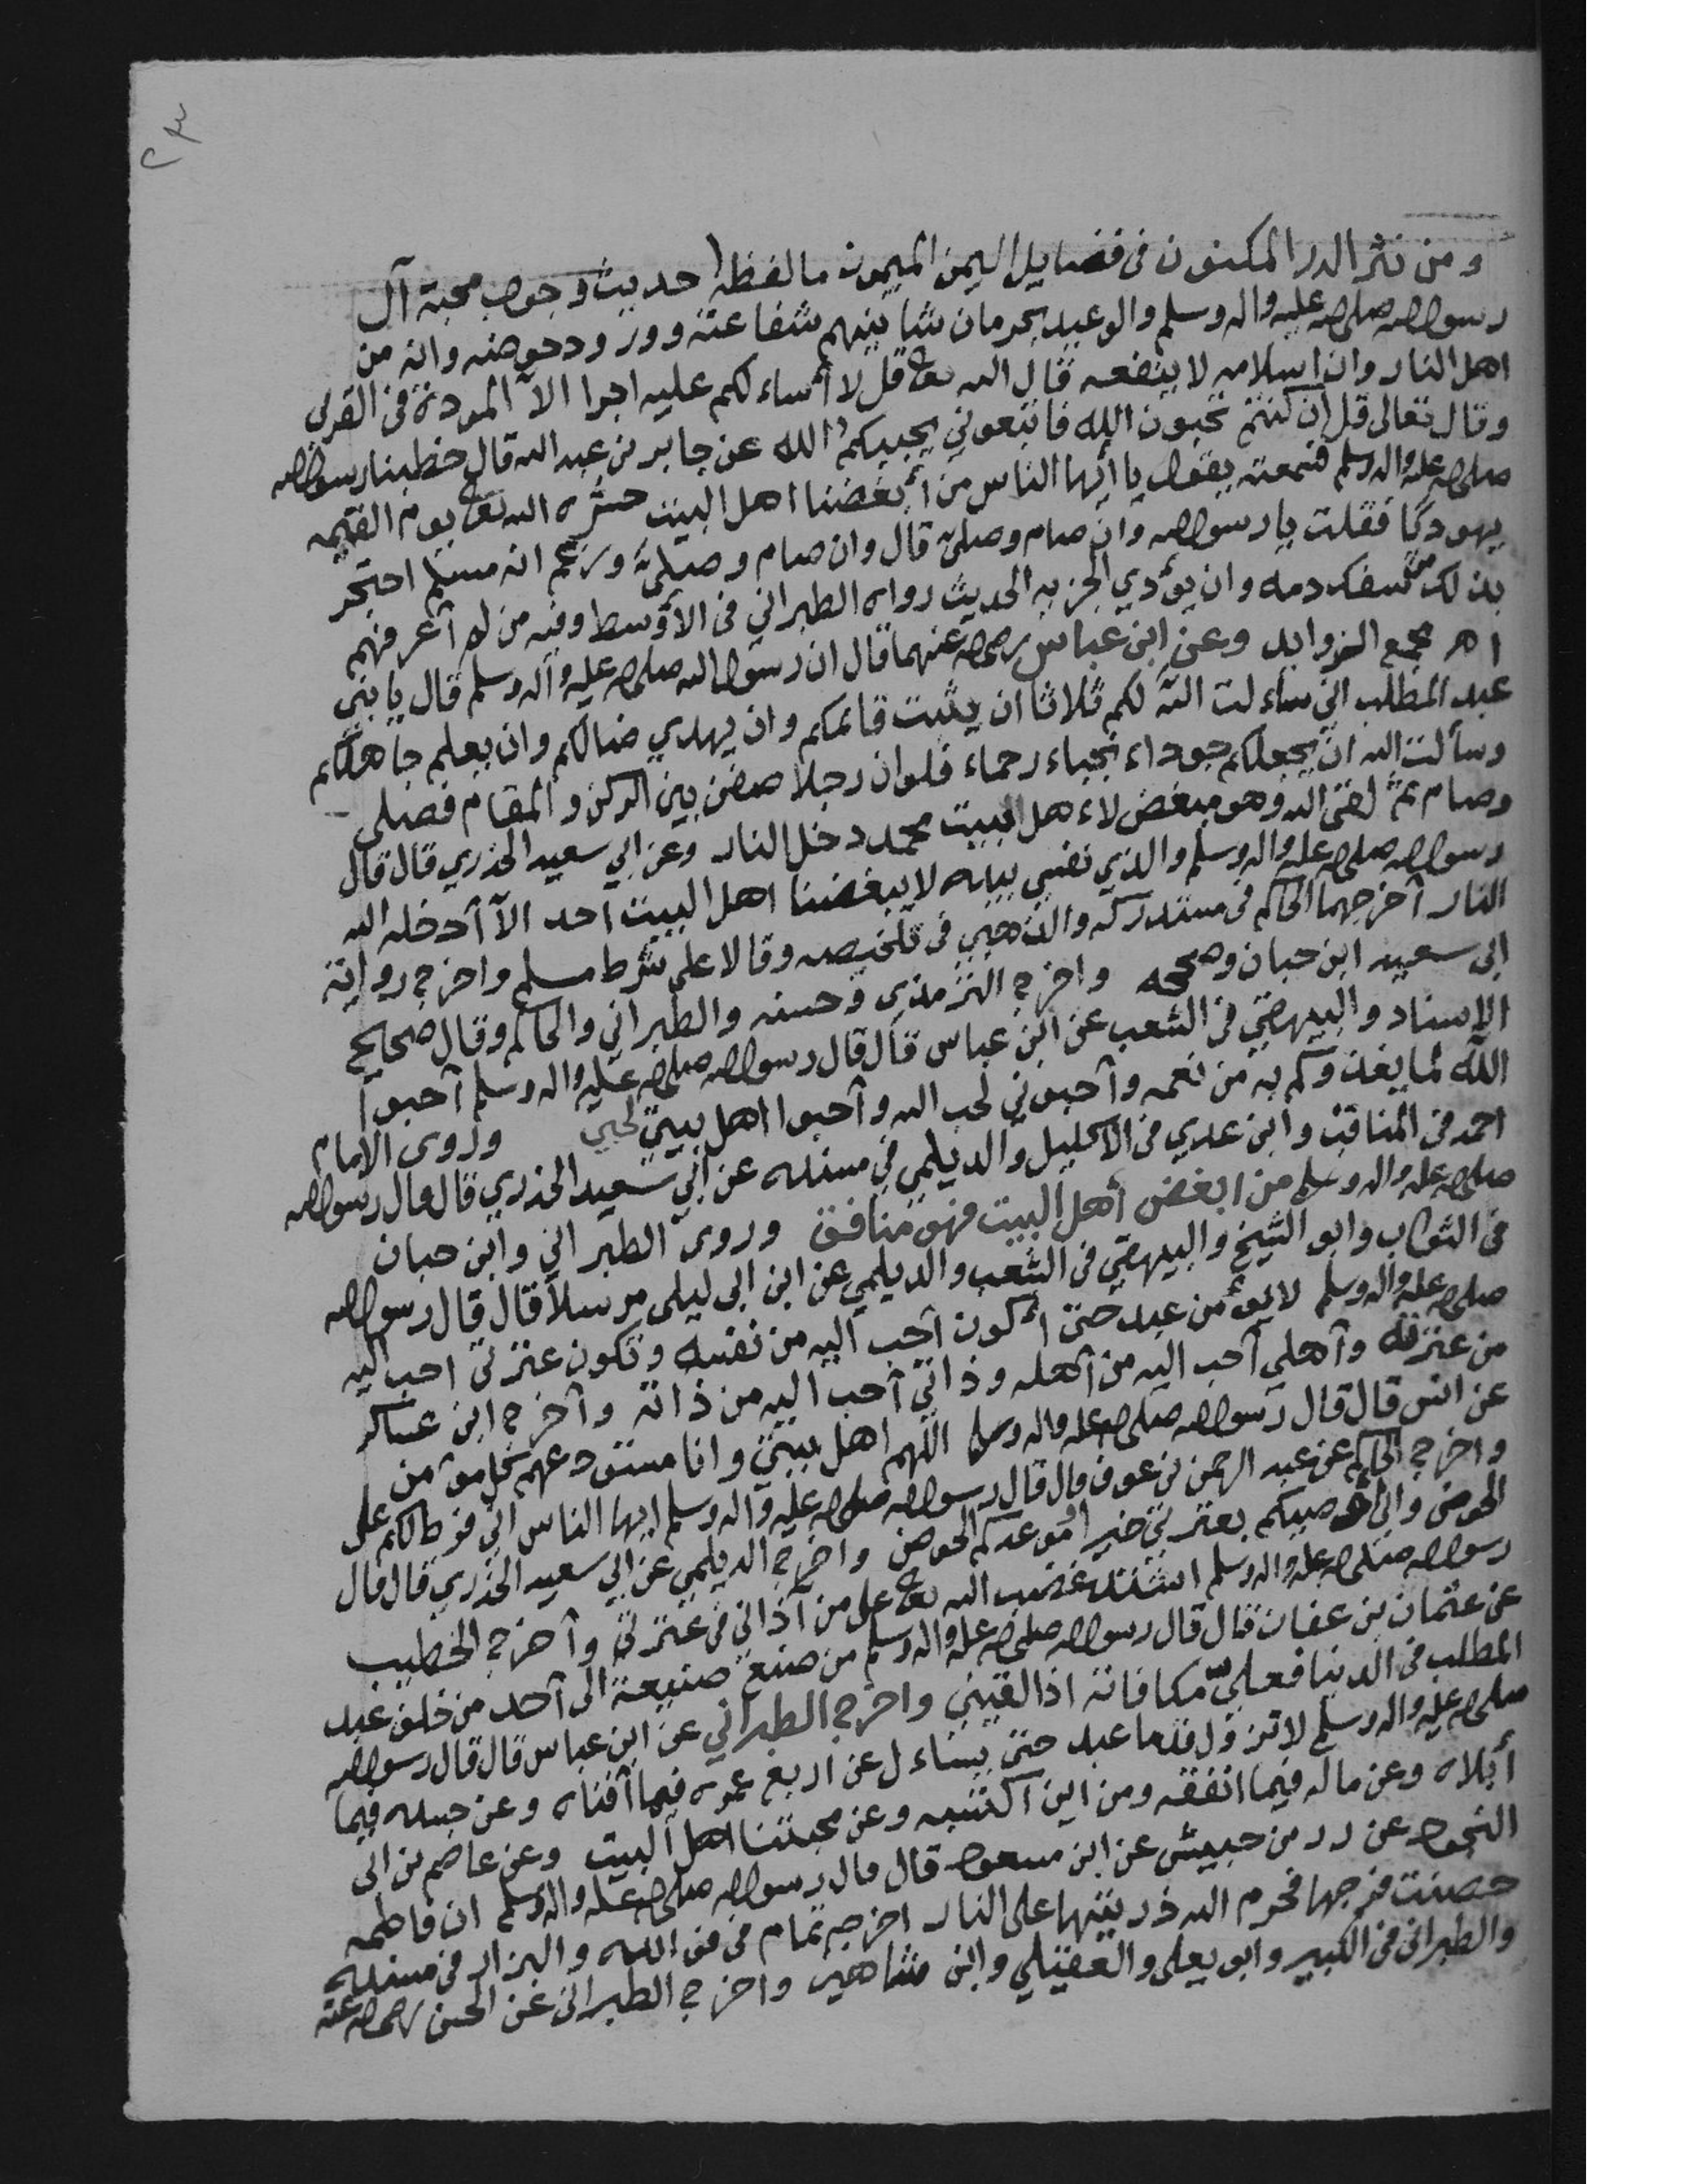 ٢٣
ومن نثر الدر المكنون في فضايل اليمن الميمون ما لفظه احديث وجوب محبة آل
رسول الله صلى الله عليه واله وسلم والوعيد بحرمان شانيهم شفاعته وورود حوضه وانه من
اهل النار وان اسلامه لا ينفعه قال الله تعا قل لا أساءلكم عليه اجرا الا المودة في القربى
وقال تعالى قل إن كنتم تحبون الله فاتبعوني يحببكم الله عن جابر بن عبد الله قال خطبنا رسول الله
صلى الله عليه واله وسلم فسمعته يقول يا أيها الناس من أبغضنا اهل البيت حشره الله تعا يوم القيمه
يهوديًا فقلت يا رسول الله وان صام وصلى قال وان صام وصلى وزعم انه مسلم احتجر
بذلك من سفك دمه وان يؤدي الجزيه الحديث رواه الطبراني في الأوسط وفيه من لم أعرفهم
اهـ مجمع الزوايد وعن ابن عباس رضي الله عنهما قال ان رسول الله صلى الله عليه وآله وسلم قال يا بني
عبد المطلب اني ساءلت الله لكم ثلاثا ان يثبت قائمكم وان يهدي ضالكم وان يعلم جاهلكم
وسألت الله ان يجعلكم جوداء نجباء رحماء فلو ان رجلا صفن بين الركن والمقام فصلى
وصام ثم لقى الله وهو مبغض لاءهل البيت محمد دخل النار وعن ابي سعيد الخدري قال قال
رسول الله صلى الله عليه واله وسلم والذي نفسي بيده لا يبغضنا اهل البيت احد الا أدخله الله
النار أخرجهما الحاكم في مستدركه والذهبي في تلخيصه وقالا على شرط مسلم واخرج رواية
ابى سعيد ابن حبان وصححه واخرج الترمذي وحسنه والطبراني والحاكم وقال صحايح
الاسناد والبيهقي في الشعب عن ابن عباس قال قال رسول الله صلى الله عليه واله وسلم أحبوا
الله لما يغذوكم به من نعمه وأحبوني لحب الله وأحبوا اهل بيتي لحبي وروى الامام
احمد في المناقب وابن عدي في الاكليل والديلمي في مسنده عن ابي سعيد الخدري قال قال رسول الله
صلى الله عليه واله وسلم من ابغض أهل البيت فهو منافق وروى الطبراني وابن حبان
في الثواب وابو الشيخ والبيهقي في الشعب والديلمي عن ابن ابى ليلى مرسلاً قال قال رسول الله
صلى الله عليه واله وسلم لا يؤمن عبد حتى أكون أحب اليه من نفسه وتكون عترتى احب اليه
من عترته وأهلي أحب اليه من أهله وذاتي أحب اليه من ذاته وأخرج ابن عساكر
عن انس قال قال رسول الله صلى الله عليه واله وسلم اللهم اهل بيتي وانا مستودعهم كل مؤمن
واخرج الحاكم عن عبد الرحمن بن عوف قال قال رسول الله صلى الله عليه وآله وسلم ايها الناس اني فرط لكم على
الحوض واني أوصيكم بعترتي خيرا موعدكم الحوض واخرج الديلمي عن ابي سعيد الخدري قال قال
رسول الله صلى الله عليه واله وسلم اشتد غضب الله تعا على من آذاني في عترتي وأخرج الخطيب
عن عثمان بن عفان قال قال رسول الله صلى الله عليه واله وسلم من صنع صنيعة الى أحد من خلف عبد
المطلب في الدنيا فعليّ مكافاته اذا لقيني واخرج الطبراني عن ابن عباس قال قال رسول الله
صلى الله عليه واله وسلم لا تزول قدما عبد حتى يساءل عن اربع عمره فيما أفناه وعن جسده فيما
أبلاه وعن ماله فيما انفقه ومن اين اكتسبه وعن محبتنا اهل البيت وعن عاصم بن ابى
النجود عن زر بن حبيش عن ابن مسعود قال قال رسول الله صلى الله عليه واله وسلم ان فاطمه
حصنت فرجها فحرم الله ذريتها على النار اخرجه تمام في فوايده والبزار في مسنده
والطبراني في الكبير وابو يعلى والعقيلي وابن شاهين واخرج الطبراني عن الحسن رضي الله عنه